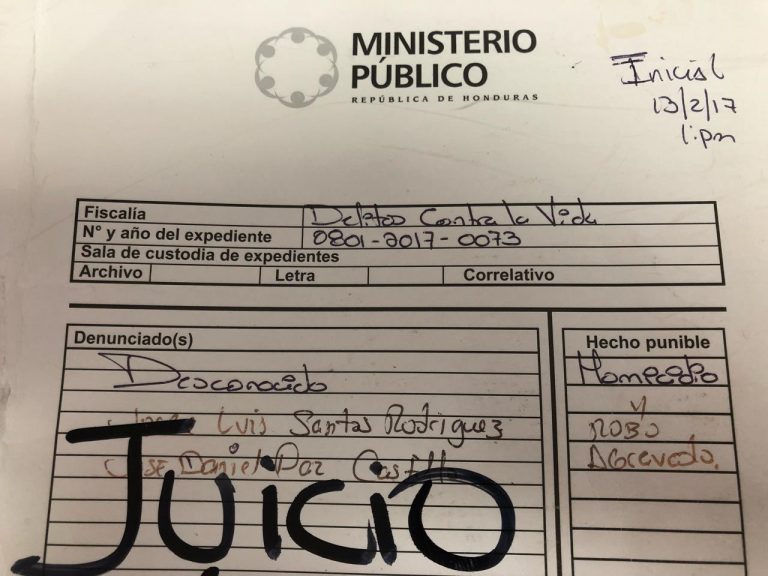 MINISTERIO
PÚBLICO
REPÚBLICA DE HONDURAS
Inicial
13/2/17
1:pm
Fiscalía Delitos Contra la Vida
N° y año del expediente 0801-2017-0073
Sala de custodia de expedientes
Archivo Letra Correlativo
Denunciado(s)
Desconocido
Luis Santos Rodriguez
Jose Daniel Paz Castillo
JUICIO
Hecho punible
Homicidio
y
ROBO
Agravado.